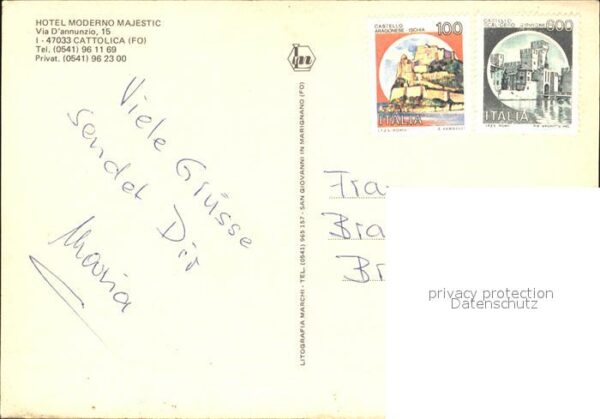 HOTEL MODERNO MAJESTIC
Via D'annunzio, 15
I - 47033 CATTOLICA (FO)
Tel. (0541) 96 11 69
Privat. (0541) 96 23 00
Viele Grüsse
sendet Dir
Maria
LITOGRAFIA MARCHI - TEL. (0541) 965 157 - SAN GIOVANNI IN MARIGNANO (FO)
CASTELLO
ARAGONESE - ISCHIA
100
ITALIA
CASTELLO
SCALIGERO
600
ITALIA
Fra
Bra
Br
privacy protection
Datenschutz